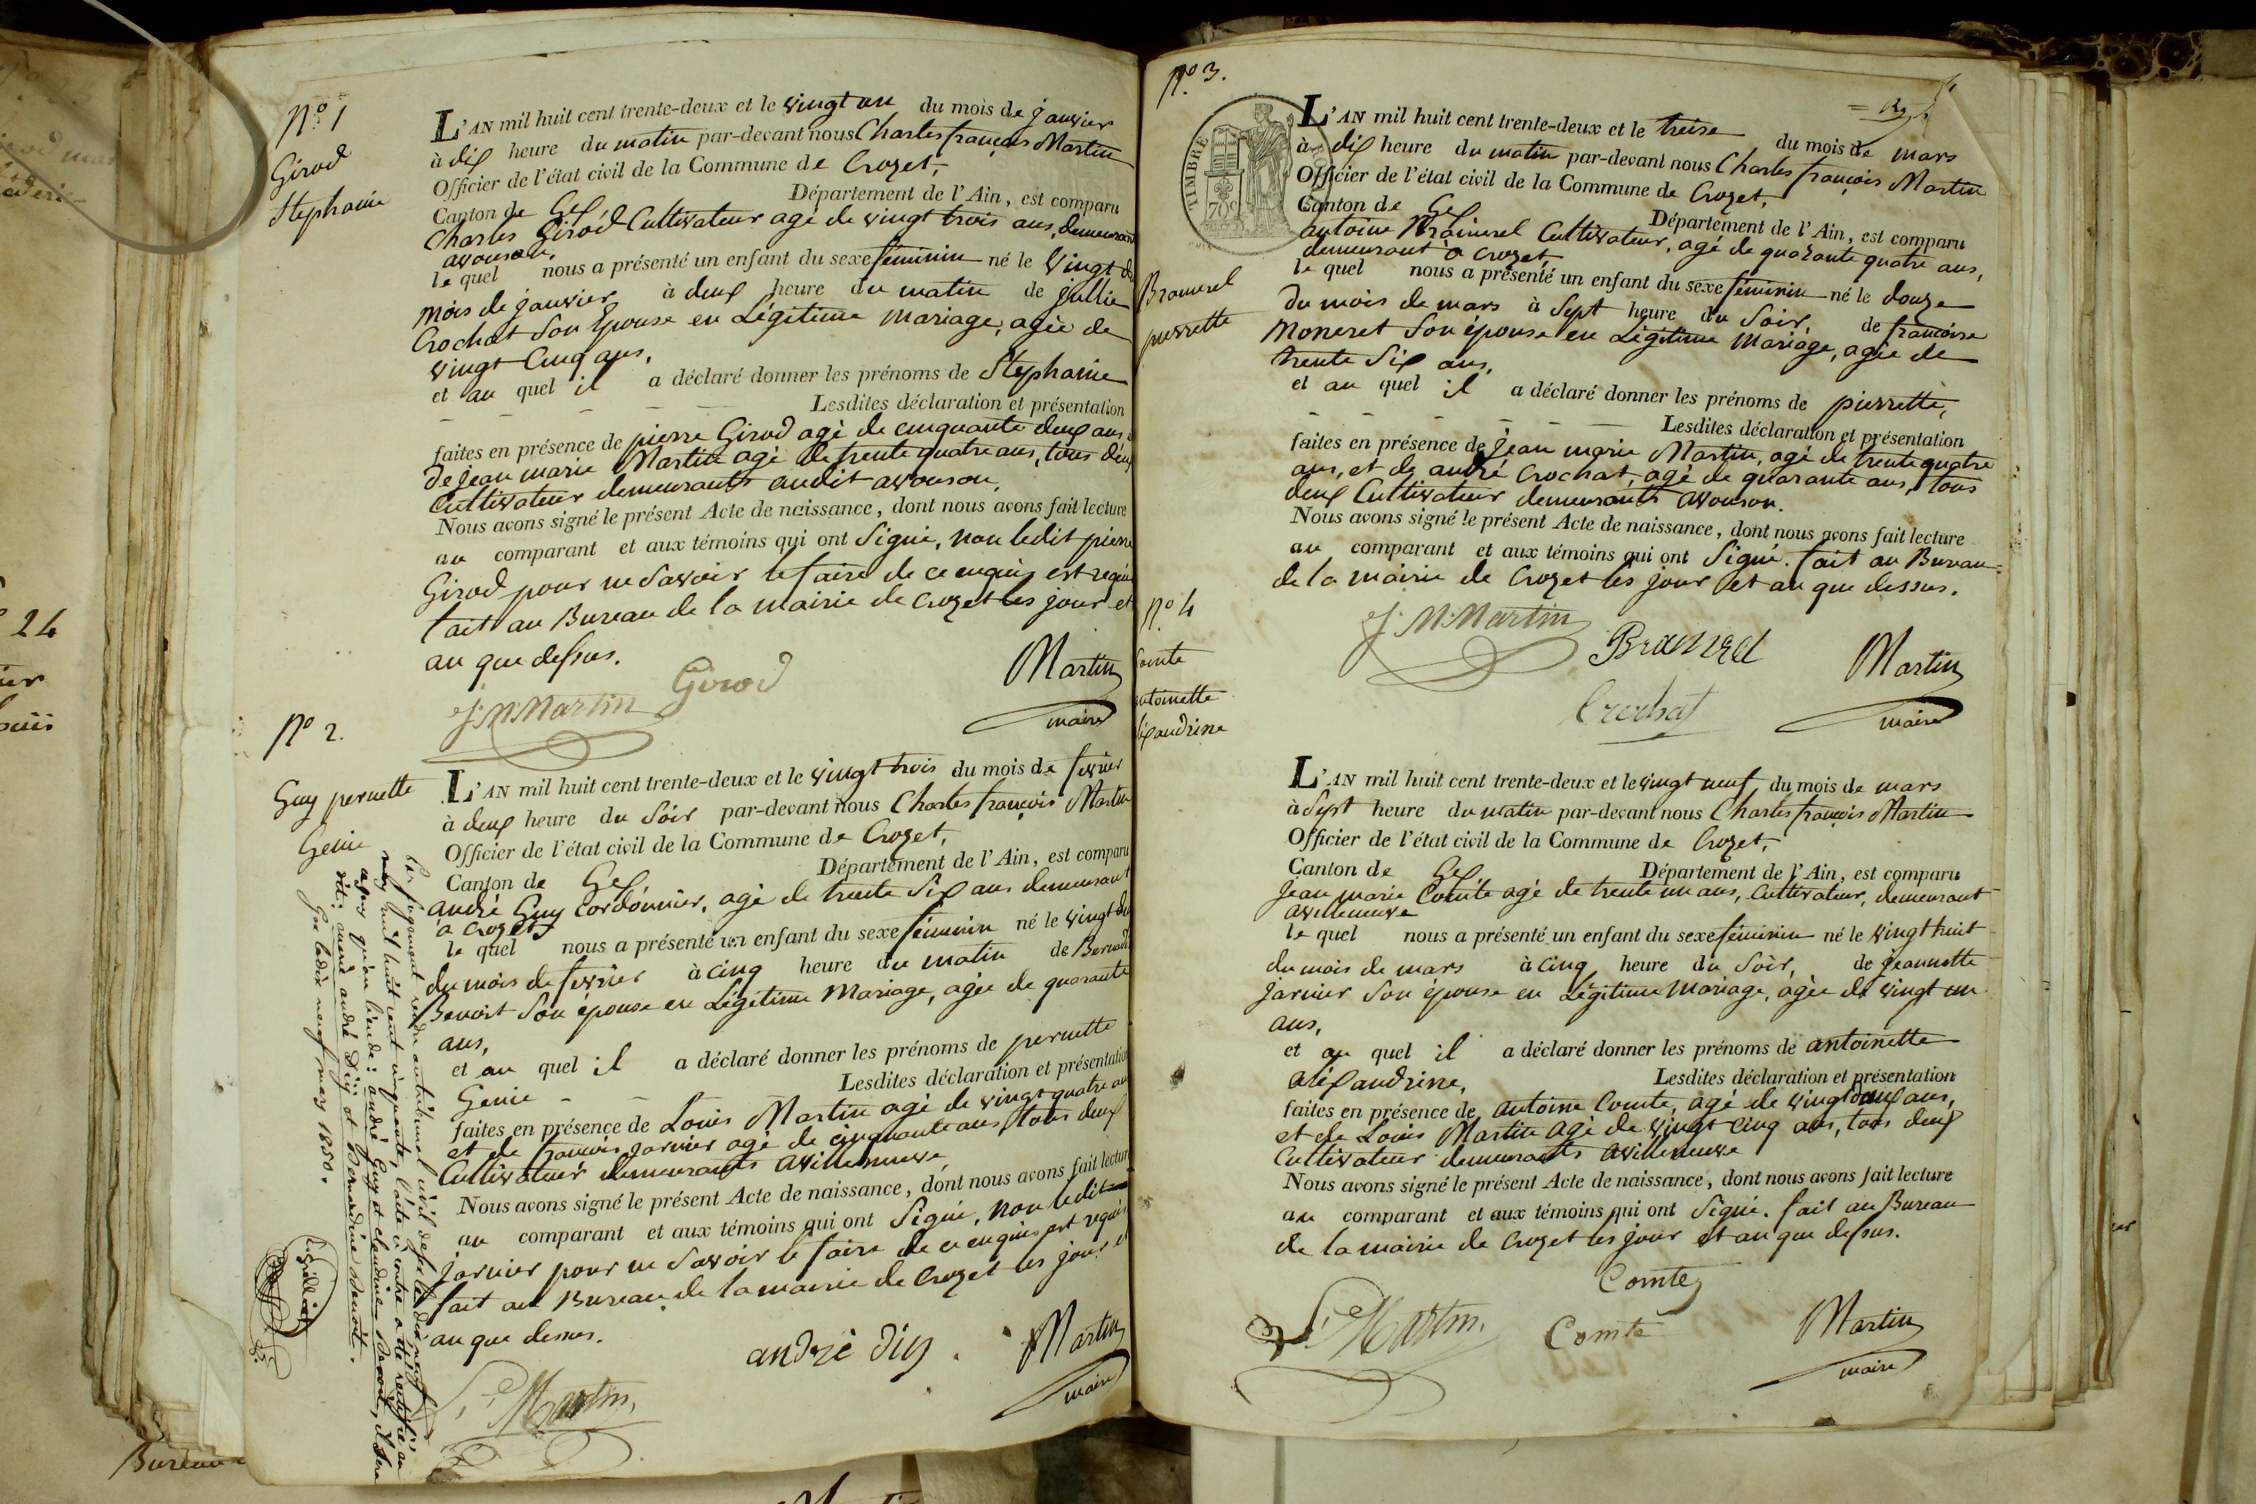 N.º 1
Girod
Stephanie
L'AN mil huit cent trente-deux et le vingt un du mois de janvier
à dix heure du matin par-devant nous Charles françois Martin
Officier de l'état civil de la Commune de Crozet,
Canton de Gex Département de l'Ain, est comparu
Charles Girod Cultivateur agé de vingt trois ans, demeurant
avouson,
le quel nous a présenté un enfant du sexe féminin né le vingt du
mois de janvier à deux heure du matin de jullie
Crochat son épouse en Légitime mariage, agée de
vingt Cinq ans,
et au quel il a déclaré donner les prénoms de Stephanie
Lesdites déclaration et présentation
faites en présence de pierre Girod agé de cinquante deux ans
de jean marie Martin agé de trente quatre ans, tous deux
Cultivateur demeurants audit avouson,
Nous avons signé le présent Acte de naissance, dont nous avons fait lecture
au comparant et aux témoins qui ont Signé, non ledit pierre
Girod pour ne Savoir le faire de ce enquis est requis
fait au Bureau de la mairie de Crozet les jour et
an que dessus.
J. M. Martin Girod Martin
maire
N.º 2.
Guy pernette
Genie
L'AN mil huit cent trente-deux et le vingt trois du mois de fevrier
à deux heure du Soir par-devant nous Charles françois Martin
Officier de l'état civil de la Commune de Crozet,
Canton de Gex Département de l'Ain, est comparu
andré Guy Cordonnier, agé de trente Six ans demeurant
à Crozet,
le quel nous a présenté un enfant du sexe féminin né le vingt du
du mois de fevrier à cinq heure du matin de Bernard
Benoit Son épouse en Légitime Mariage, agée de quarante
ans,
et au quel il a déclaré donner les prénoms de pernette
Genie Lesdites déclaration et présentation
faites en présence de Louis Martin agé de vingt quatre an
et de françois jarnier agé de cinquante ans, tous deux
Cultivateur demeurants avilleneuve,
Nous avons signé le présent Acte de naissance, dont nous avons fait lecture
au comparant et aux témoins qui ont Signé, non ledit
jarnier pour ne Savoir le faire de ce enquis est requis
fait au Bureau de la mairie de Crozet les jour et
an que dessus.
andré diy. Martin
L. Martin maire
Par jugement rendu au tribunal civil de Gex le dix neuf
mars mil huit cent cinquante, l'acte ci contre a été rectifié en
ce qu'au lieu de: andré Guy et claudine Benoit, il sera
dit: andré Diy et Bernardine Benoit.
Gex le dix neuf mars 1850.
N.º 3.
TIMBRE
70c
Bramerel
pierrette
L'AN mil huit cent trente-deux et le treise du mois de mars
à dix heure du matin par-devant nous Charles françois Martin
Officier de l'état civil de la Commune de Crozet,
Canton de Gex Département de l'Ain, est comparu
antoine Bramerel Cultivateur, agé de quarante quatre ans,
demeurant à Crozet,
le quel nous a présenté un enfant du sexe féminin né le douze
du mois de mars à Sept heure du Soir, de françoise
Moneret Son épouse en Légitime Mariage, agée de
trente Six ans,
et au quel il a déclaré donner les prénoms de pierrette,
Lesdites déclaration et présentation
faites en présence de jean marie Martin, agé de trente quatre
ans, et de andré Crochat, agé de quarante ans, tous
deux Cultivateur demeurants avouson.
Nous avons signé le présent Acte de naissance, dont nous avons fait lecture
au comparant et aux témoins qui ont Signé. fait au Bureau
de la mairie de Crozet les jour et an que dessus.
J. M. Martin Martin
Crochat maire
N.º 4
Comte
antoinette
alixandrine
L'AN mil huit cent trente-deux et le vingt neuf du mois de mars
à Sept heure du matin par-devant nous Charles françois Martin
Officier de l'état civil de la Commune de Crozet,
Canton de Gex Département de l'Ain, est comparu
jean marie Comte agé de trente un ans, Cultivateur, demeurant
avilleneuve
le quel nous a présenté un enfant du sexe féminin né le vingt huit
du mois de mars à cinq heure du Soir, de jeannette
jarnier Son épouse en Légitime Mariage, agée de vingt un
ans,
et au quel il a déclaré donner les prénoms de antoinette
alixandrine, Lesdites déclaration et présentation
faites en présence de antoine Comte, agé de vingt deux ans,
et de Louis Martin agé de vingt Cinq ans, tous deux
Cultivateur demeurants avilleneuve
Nous avons signé le présent Acte de naissance, dont nous avons fait lecture
au comparant et aux témoins qui ont Signé. fait au Bureau
de la mairie de Crozet les jour et an que dessus.
Comte
L. Martin. Comte Martin
maire
24
Bureau